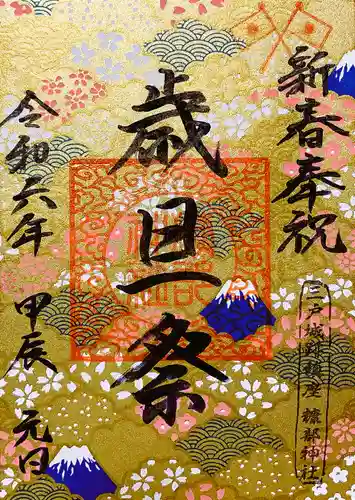 新春奉祝
三戸城跡鎮座 糠部神社
歳旦祭
令和六年 甲辰 元旦